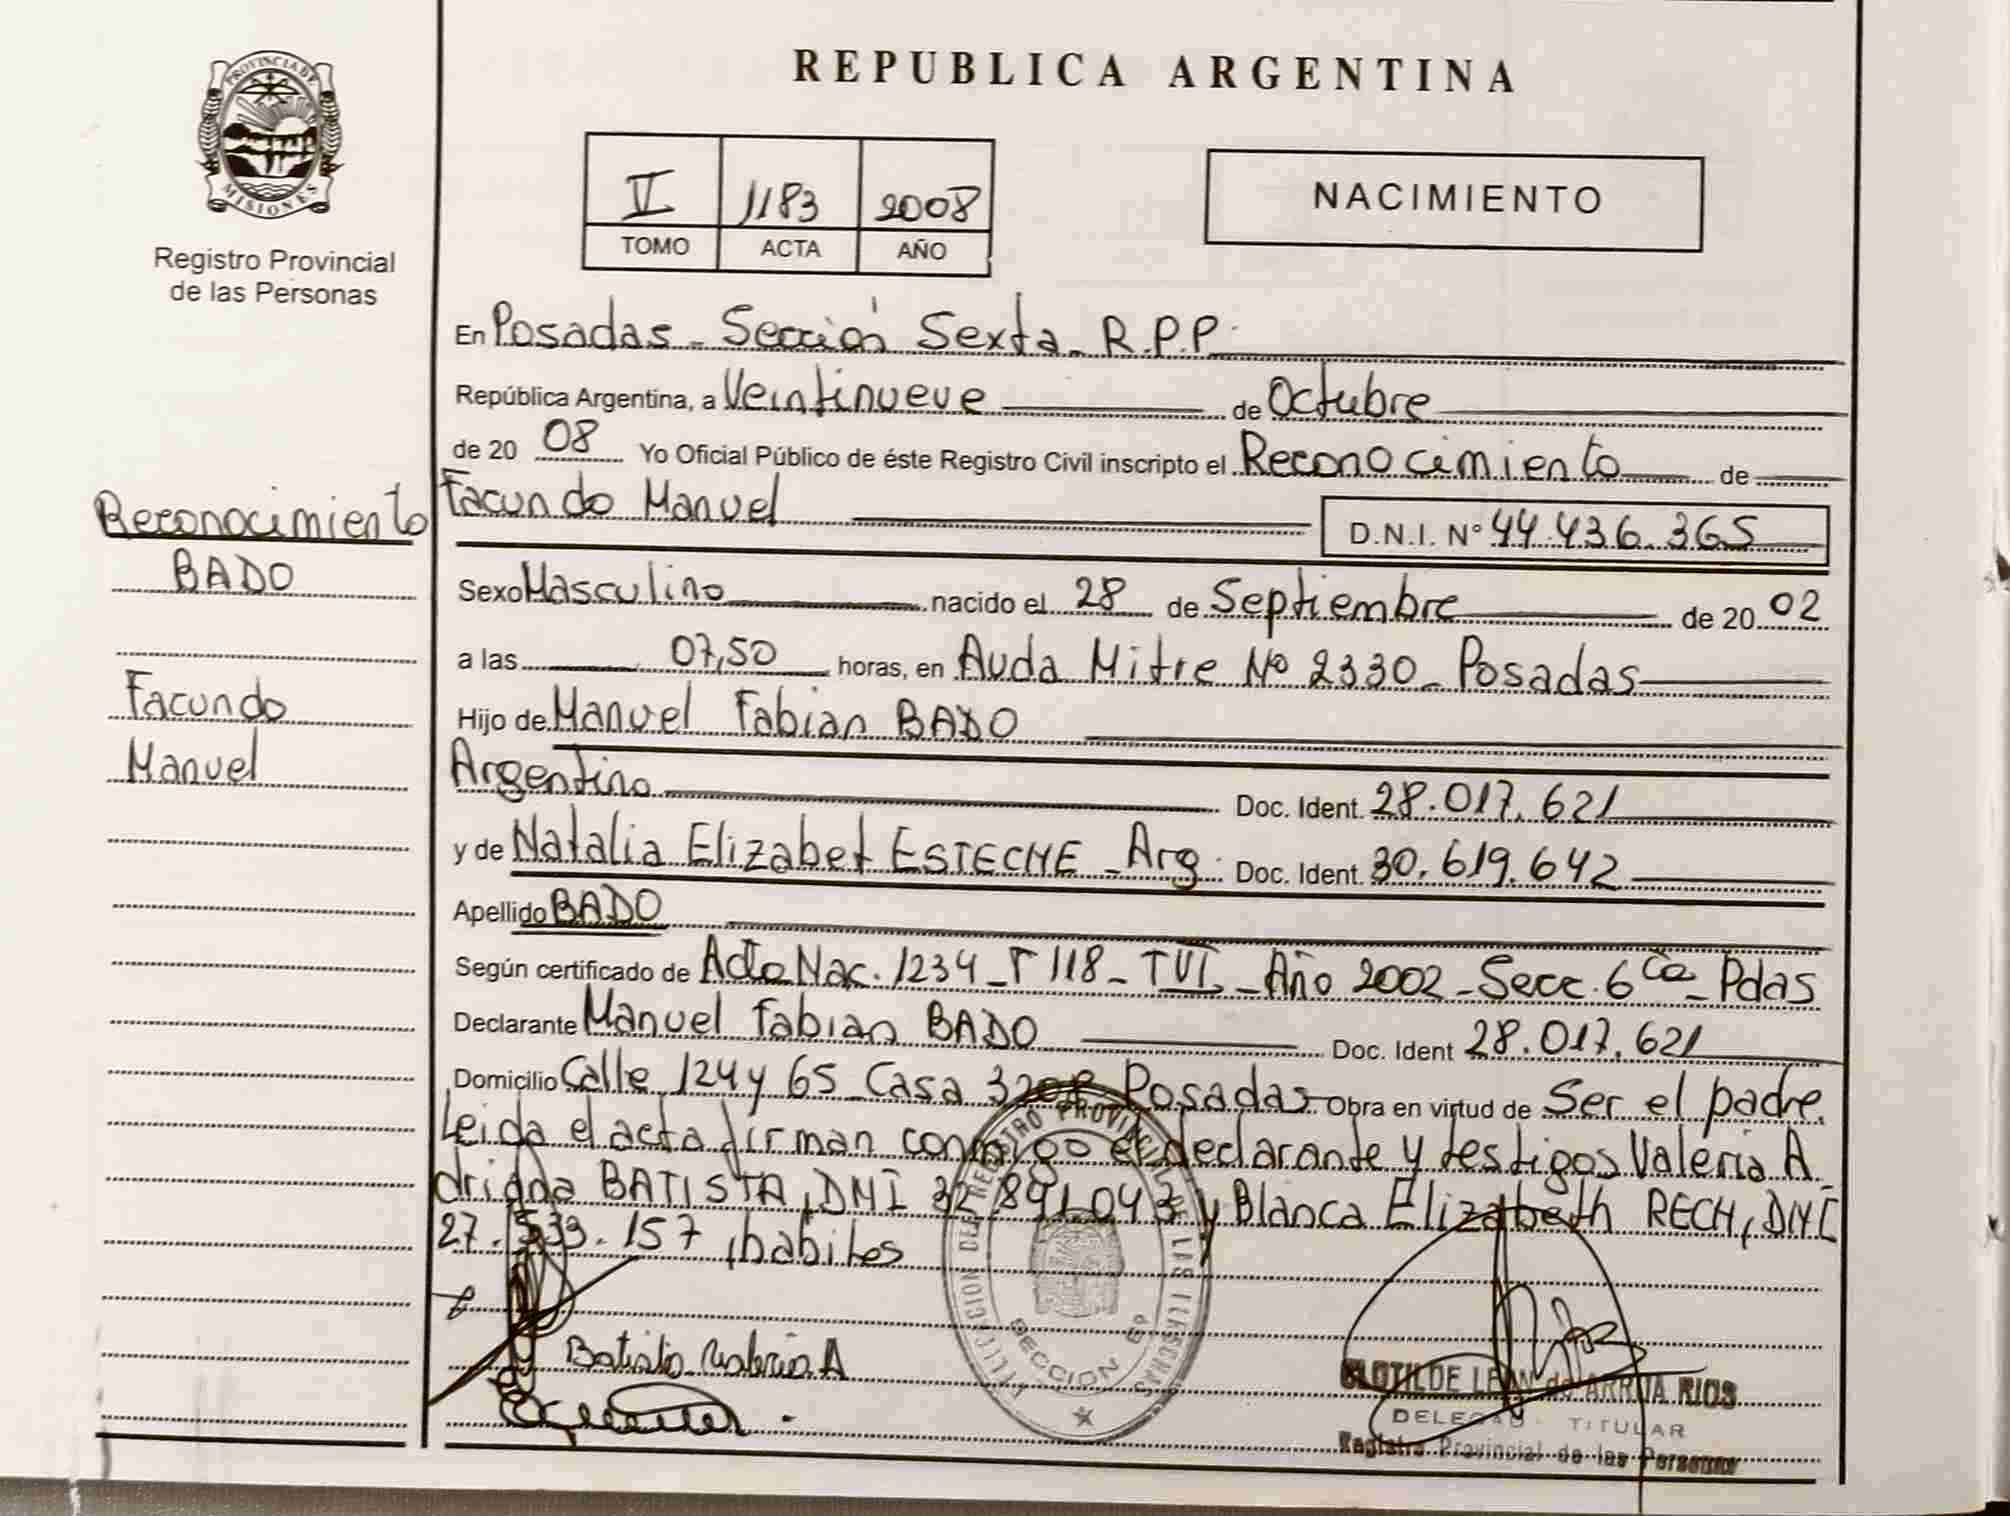 PROVINCIA DE
MISIONES
Registro Provincial
de las Personas
REPUBLICA ARGENTINA
V 1183 2008
TOMO ACTA AÑO
NACIMIENTO
En Posadas - Sección Sexta - R.P.P.
República Argentina, a Veintinueve de Octubre
de 20 08 Yo Oficial Público de éste Registro Civil inscripto el Reconocimiento de
Facundo Manuel D.N.I. Nº 44.436.365
Reconocimiento
BADO
Facundo
Manuel
Sexo Masculino nacido el 28 de Septiembre de 20 02
a las 07,50 horas, en Avda Mitre Nº 2330 - Posadas
Hijo de Manuel Fabian BADO
Argentino Doc. Ident. 28.017.621
y de Natalia Elizabet ESTECHE - Arg. Doc. Ident. 30.619.642
Apellido BADO
Según certificado de Acta Nac. 1234 - T 118 - TVI - Año 2002 - Secc. 6ta - Pdas
Declarante Manuel Fabian BADO Doc. Ident 28.017.621
Domicilio Calle 124 y 65 - Casa Posadas Obra en virtud de Ser el padre.
Leida el acta firman conmigo el declarante y testigos Valeria A
driana BATISTA, DNI 32.891.043 y Blanca Elizabeth RECH, DNI
27.533.157, habiles
Batista Valeria A
REGISTRO PROVINCIAL DE LAS PERSONAS
SECCION 6ª
CLOTILDE LEAN de ARRUA RIOS
DELEGADA TITULAR
Registro Provincial de las Personas